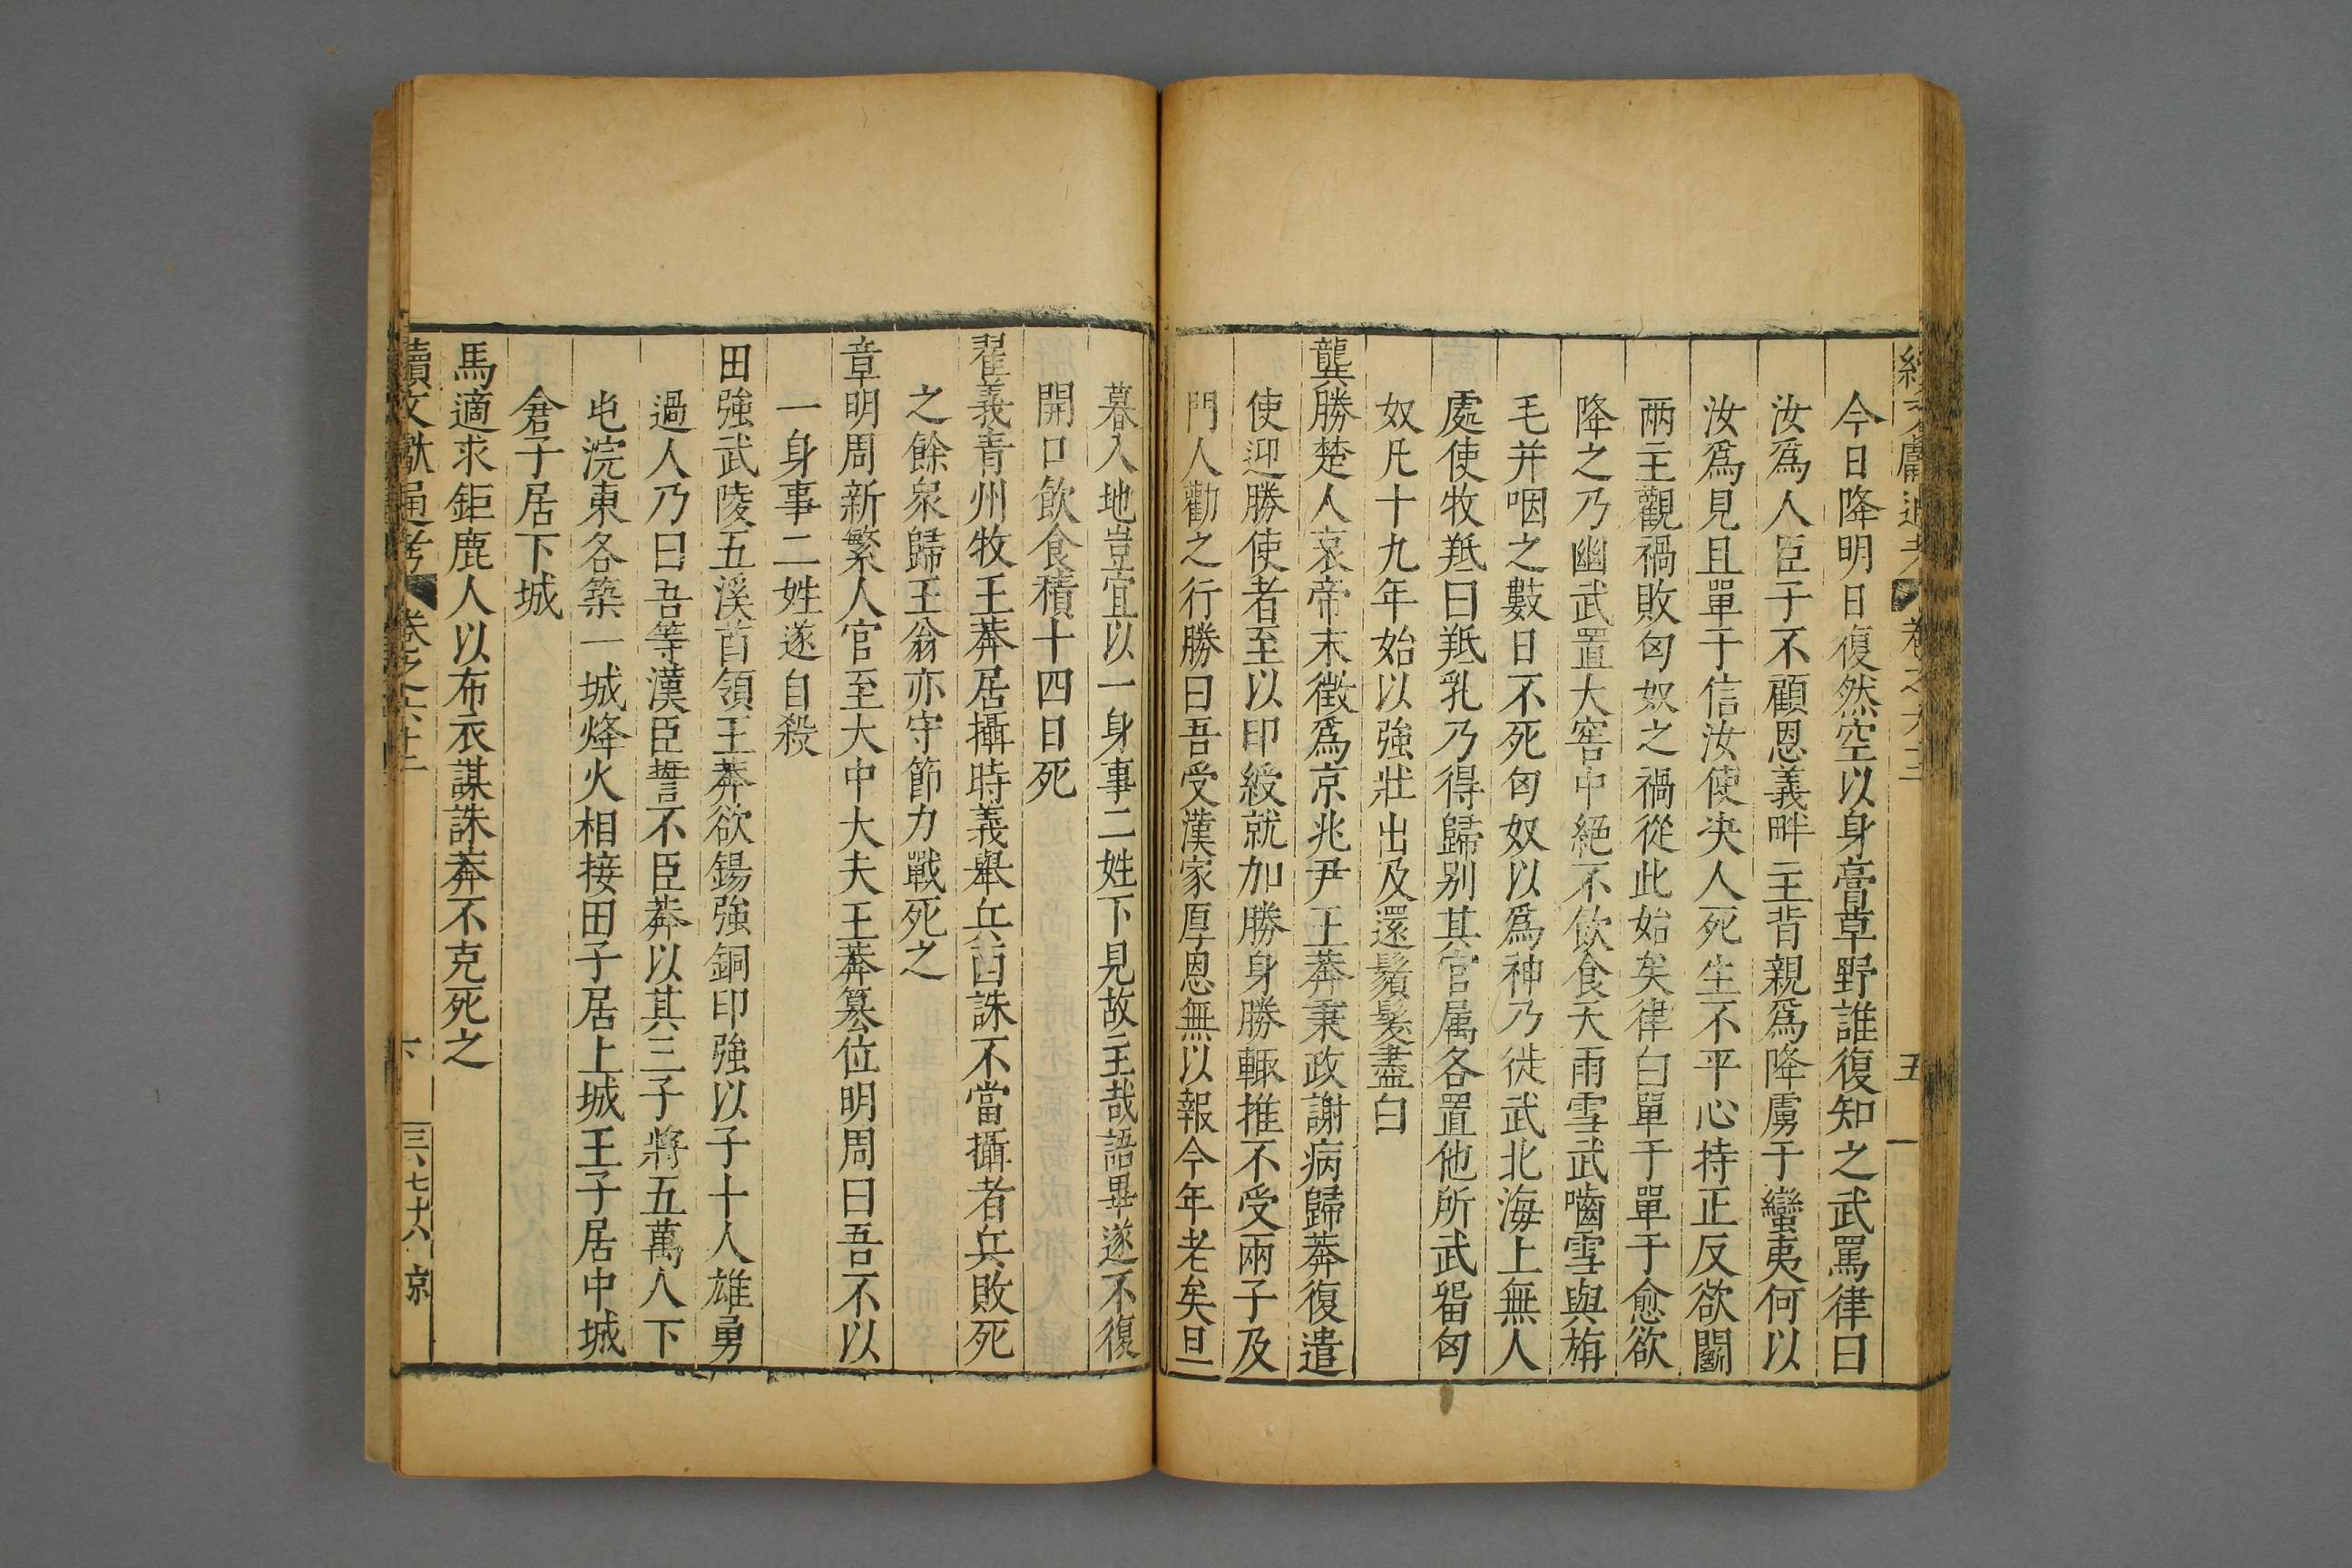 續文獻通考 卷之六十二 五
今日降明日復然空以身膏草野誰復知之武罵律曰
汝爲人臣子不顧恩義畔主背親爲降虜于蠻夷何以
汝爲見且單于信汝使决人死生不平心持正反欲鬭
兩主觀禍敗匈奴之禍從此始矣律白單于單于愈欲
降之乃幽武置大窖中絕不飲食天雨雪武嚙雪與旃
毛并咽之數日不死匈奴以爲神乃徙武北海上無人
處使牧羝曰羝乳乃得歸别其官属各置他所武留匈
奴凡十九年始以強壯出及還鬚髮盡白
龔勝楚人哀帝末徵爲京兆尹王莽秉政謝病歸莽復遣
使迎勝使者至以印綬就加勝身勝輒推不受兩子及
門人勸之行勝曰吾受漢家厚恩無以報今年老矣旦
暮入地豈宜以一身事二姓下見故主哉語畢遂不復
開口飲食積十四日死
翟義青州牧王莽居攝時義舉兵西誅不當攝者兵敗死
之餘衆歸王翁亦守節力戰死之
章明周新繁人官至大中大夫王莽篡位明周曰吾不以
一身事二姓遂自殺
田強武陵五溪酋領王莽欲錫強銅印強以子十人雄勇
過人乃曰吾等漢臣誓不臣莽以其三子將五萬人下
屯浣東各築一城烽火相接田子居上城王子居中城
倉子居下城
馬適求鉅鹿人以布衣謀誅莽不克死之
續文獻通考 卷之六十二 下 三七十八 京